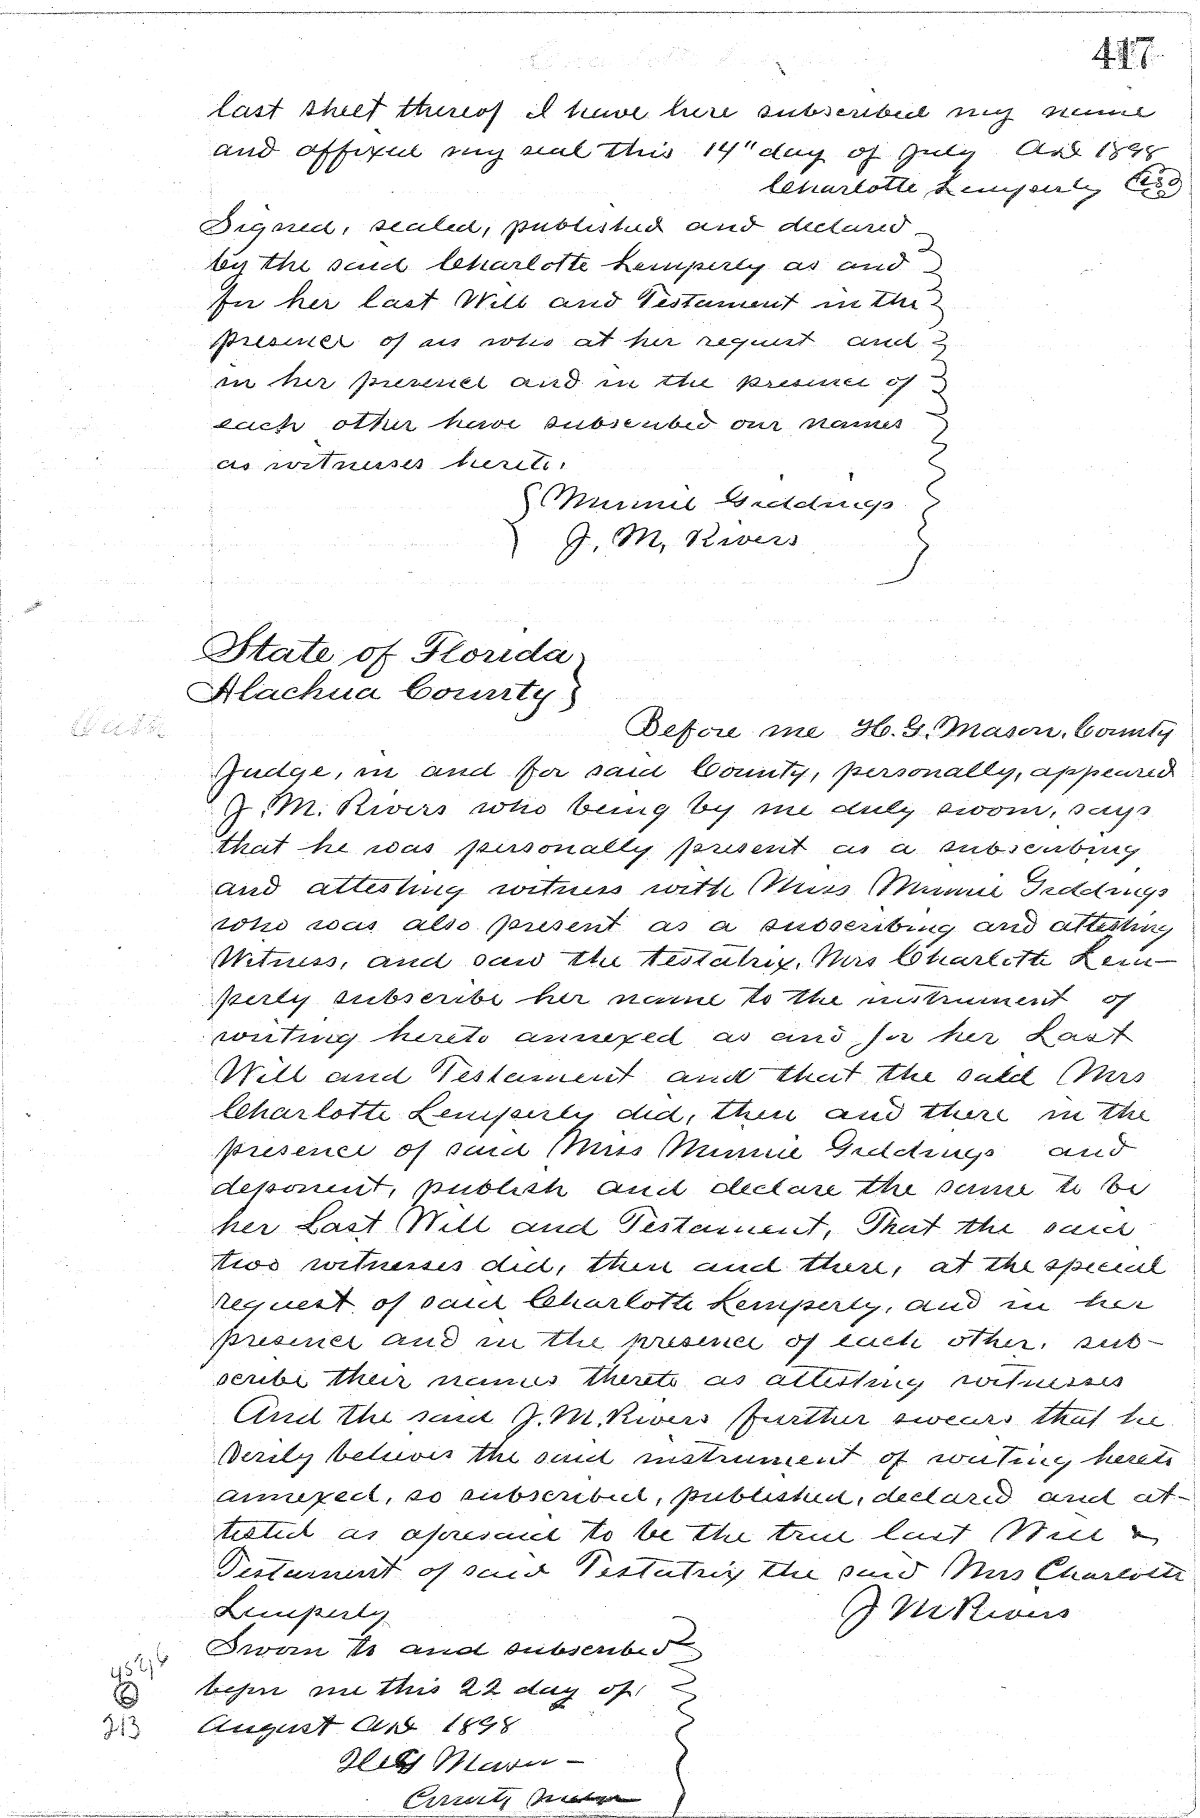 417
last sheet thereof I have here subscribed my name
and affixed my seal this 14" day of July AD 1898
Charlotte Lemperly
Signed, sealed, published and declared
by the said Charlotte Lemperly as and
for her last Will and Testament in the
presence of us who at her request and
in her presence and in the presence of
each other have subscribed our names
as witnesses hereto.
Minnie Giddings
J. M. Rivers
State of Florida
Alachua County
Before me H. G. Mason, County
Judge, in and for said County, personally, appeared
J. M. Rivers who being by me duly sworn, says
that he was personally present as a subscribing
and attesting witness with Miss Minnie Giddings
who was also present as a subscribing and attesting
Witness, and saw the testatrix, Mrs Charlotte Lem-
perly subscribe her name to the instrument of
writing hereto annexed as and for her Last
Will and Testament and that the said Mrs
Charlotte Lemperly did, then and there in the
presence of said Miss Minnie Giddings and
deponent, publish and declare the same to be
her Last Will and Testament, That the said
two witnesses did, then and there, at the special
request of said Charlotte Lemperly, and in her
presence and in the presence of each other, sub-
scribe their names thereto as attesting witnesses
And the said J. M. Rivers further swears that he
verily believes the said instrument of writing hereto
annexed, so subscribed, published, declared and at-
tested as aforesaid to be the true last Will &
Testament of said Testatrix the said Mrs Charlotte
Lemperly
J M Rivers
Sworn to and subscribed
before me this 22 day of
August AD 1898
H G Mason
County
213